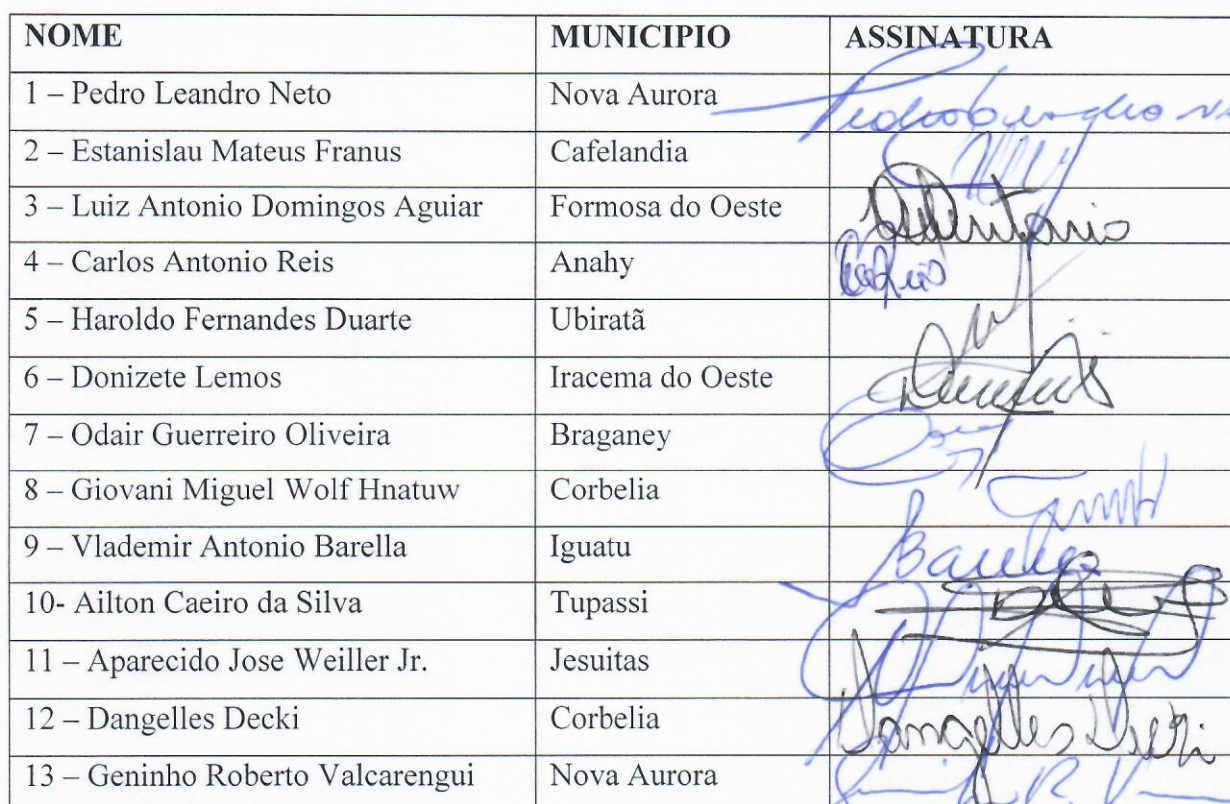 NOME MUNICIPIO ASSINATURA
1 – Pedro Leandro Neto Nova Aurora
2 – Estanislau Mateus Franus Cafelandia
3 – Luiz Antonio Domingos Aguiar Formosa do Oeste
4 – Carlos Antonio Reis Anahy
5 – Haroldo Fernandes Duarte Ubiratã
6 – Donizete Lemos Iracema do Oeste
7 – Odair Guerreiro Oliveira Braganey
8 – Giovani Miguel Wolf Hnatuw Corbelia
9 – Vlademir Antonio Barella Iguatu
10- Ailton Caeiro da Silva Tupassi
11 – Aparecido Jose Weiller Jr. Jesuitas
12 – Dangelles Decki Corbelia Dangelles Decki
13 – Geninho Roberto Valcarengui Nova Aurora